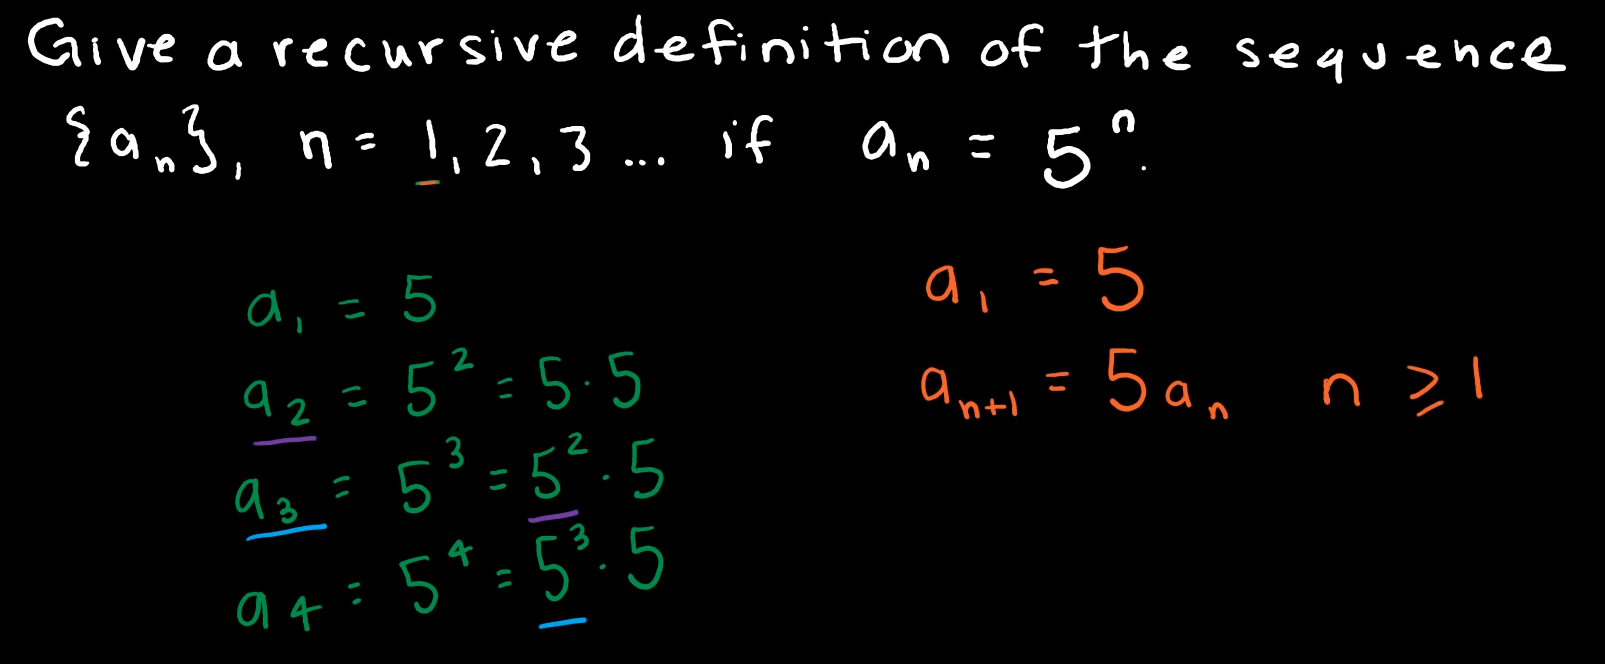 Give a recursive definition of the sequence
{aₙ}, n = 1, 2, 3 ... if aₙ = 5ⁿ.
a₁ = 5
a₂ = 5² = 5·5
a₃ = 5³ = 5²·5
a₄ = 5⁴ = 5³·5
a₁ = 5
aₙ₊₁ = 5aₙ n ≥ 1